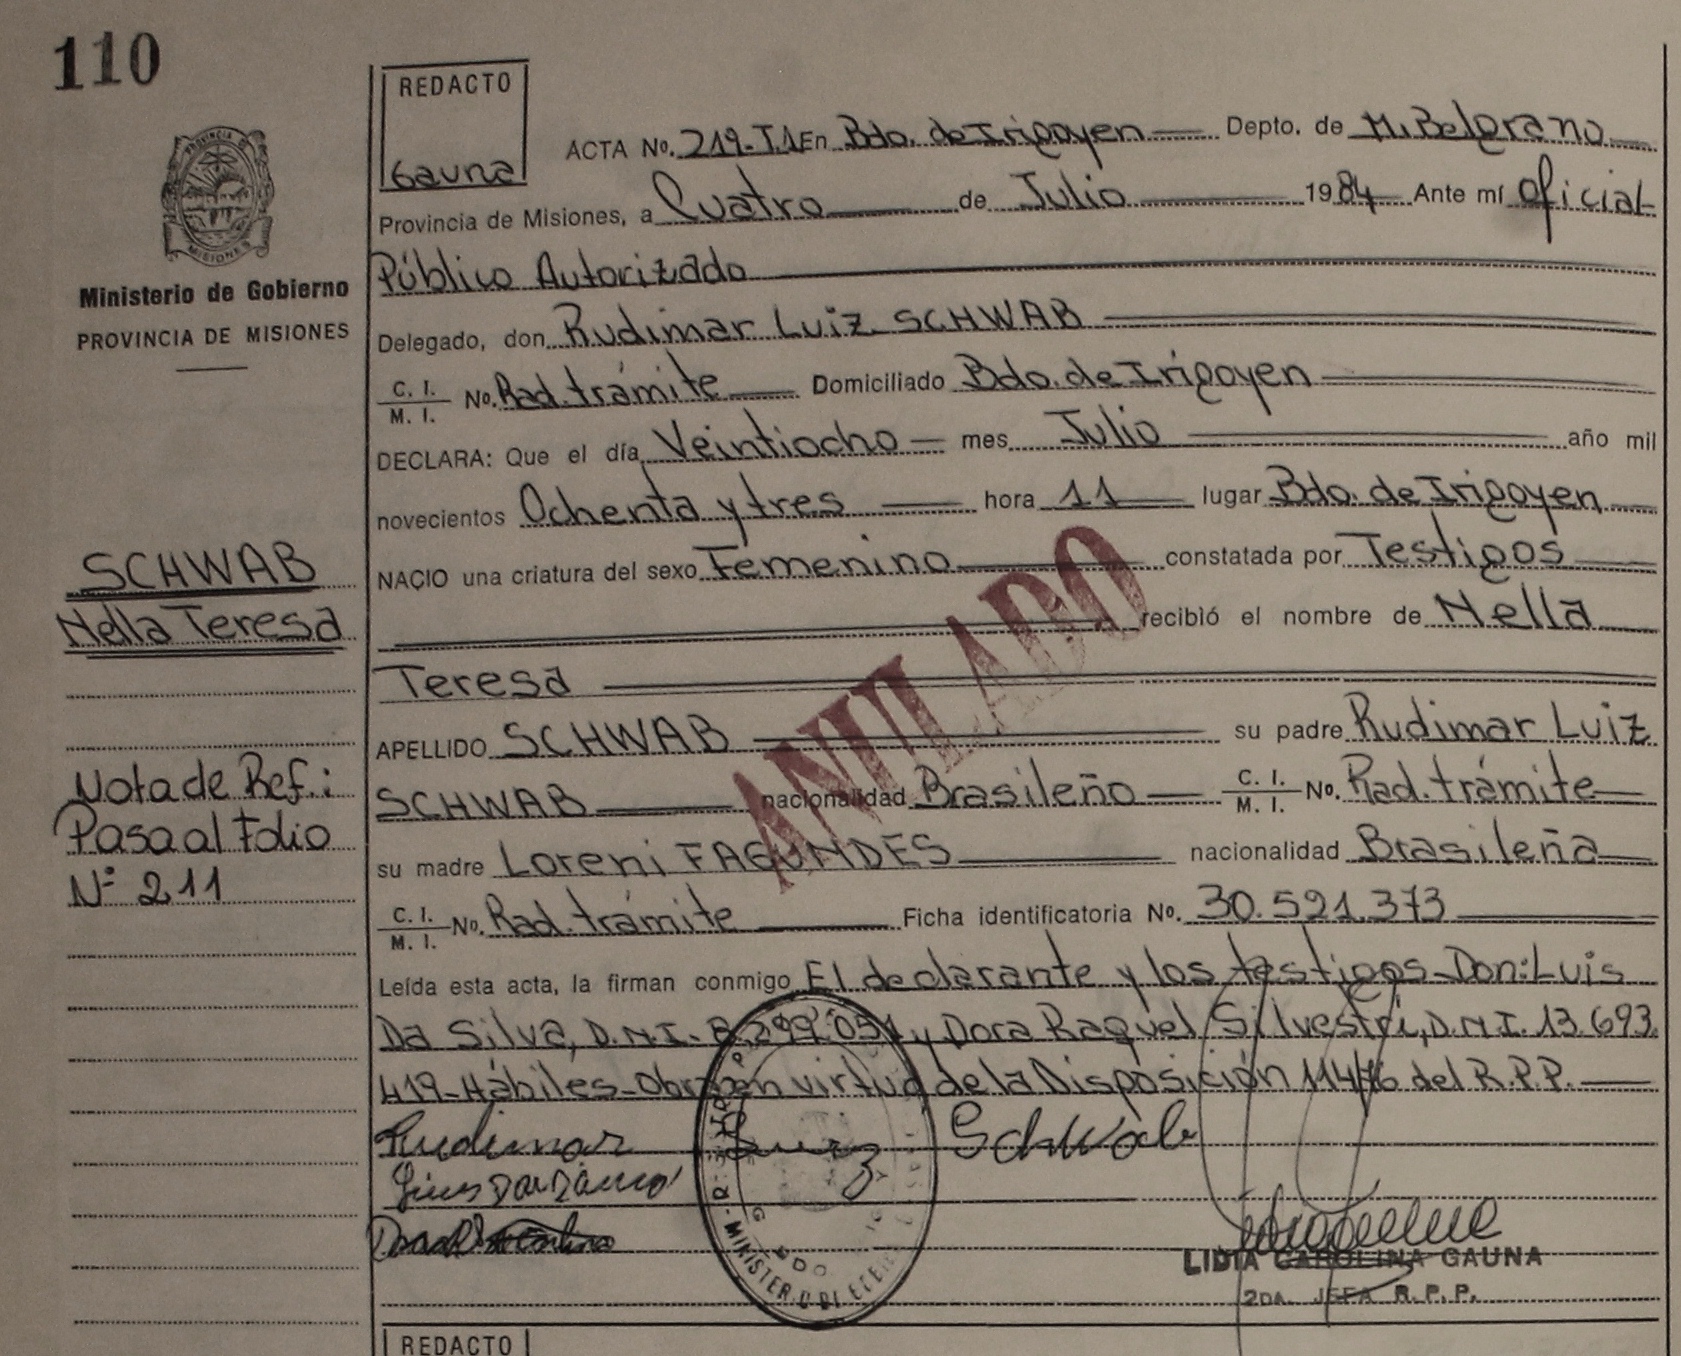 110
REDACTO
Gauna
PROVINCIA
MISIONES
Ministerio de Gobierno
PROVINCIA DE MISIONES
ACTA No. 219-T.1 En Bdo. de Irigoyen Depto. de M. Belgrano
Provincia de Misiones, a Cuatro de Julio 1984 Ante mí Oficial
Público Autorizado
Delegado, don Rudimar Luiz SCHWAB
C. I. / M. I. No. Rad. trámite Domiciliado Bdo. de Irigoyen
DECLARA: Que el día Veintiocho mes Julio año mil
novecientos Ochenta y tres hora 11 lugar Bdo. de Irigoyen
NACIO una criatura del sexo Femenino constatada por Testigos
recibió el nombre de Nella
Teresa
APELLIDO SCHWAB su padre Rudimar Luiz
SCHWAB nacionalidad Brasileño C. I. / M. I. No. Rad. trámite
su madre Loreni FAGUNDES nacionalidad Brasileña
C. I. / M. I. No. Rad. trámite Ficha identificatoria No. 30.521.373
Leída esta acta, la firman conmigo El declarante y los testigos Don: Luis
Da Silva, D.N.I. 8.299.051 y Dora Raquel Silvestri, D.N.I. 13.693.
419-Hábiles-Obran en virtud de la Disposición 114/76 del R.P.P.
Rudimar Luiz Schwab
SCHWAB
Nella Teresa
Nota de Ref.:
Pasa al Folio
Nº 211
ANULADO
MINISTERIO DE
LIDIA CAROLINA GAUNA
2DA. JEFA R. P. P.
REDACTO